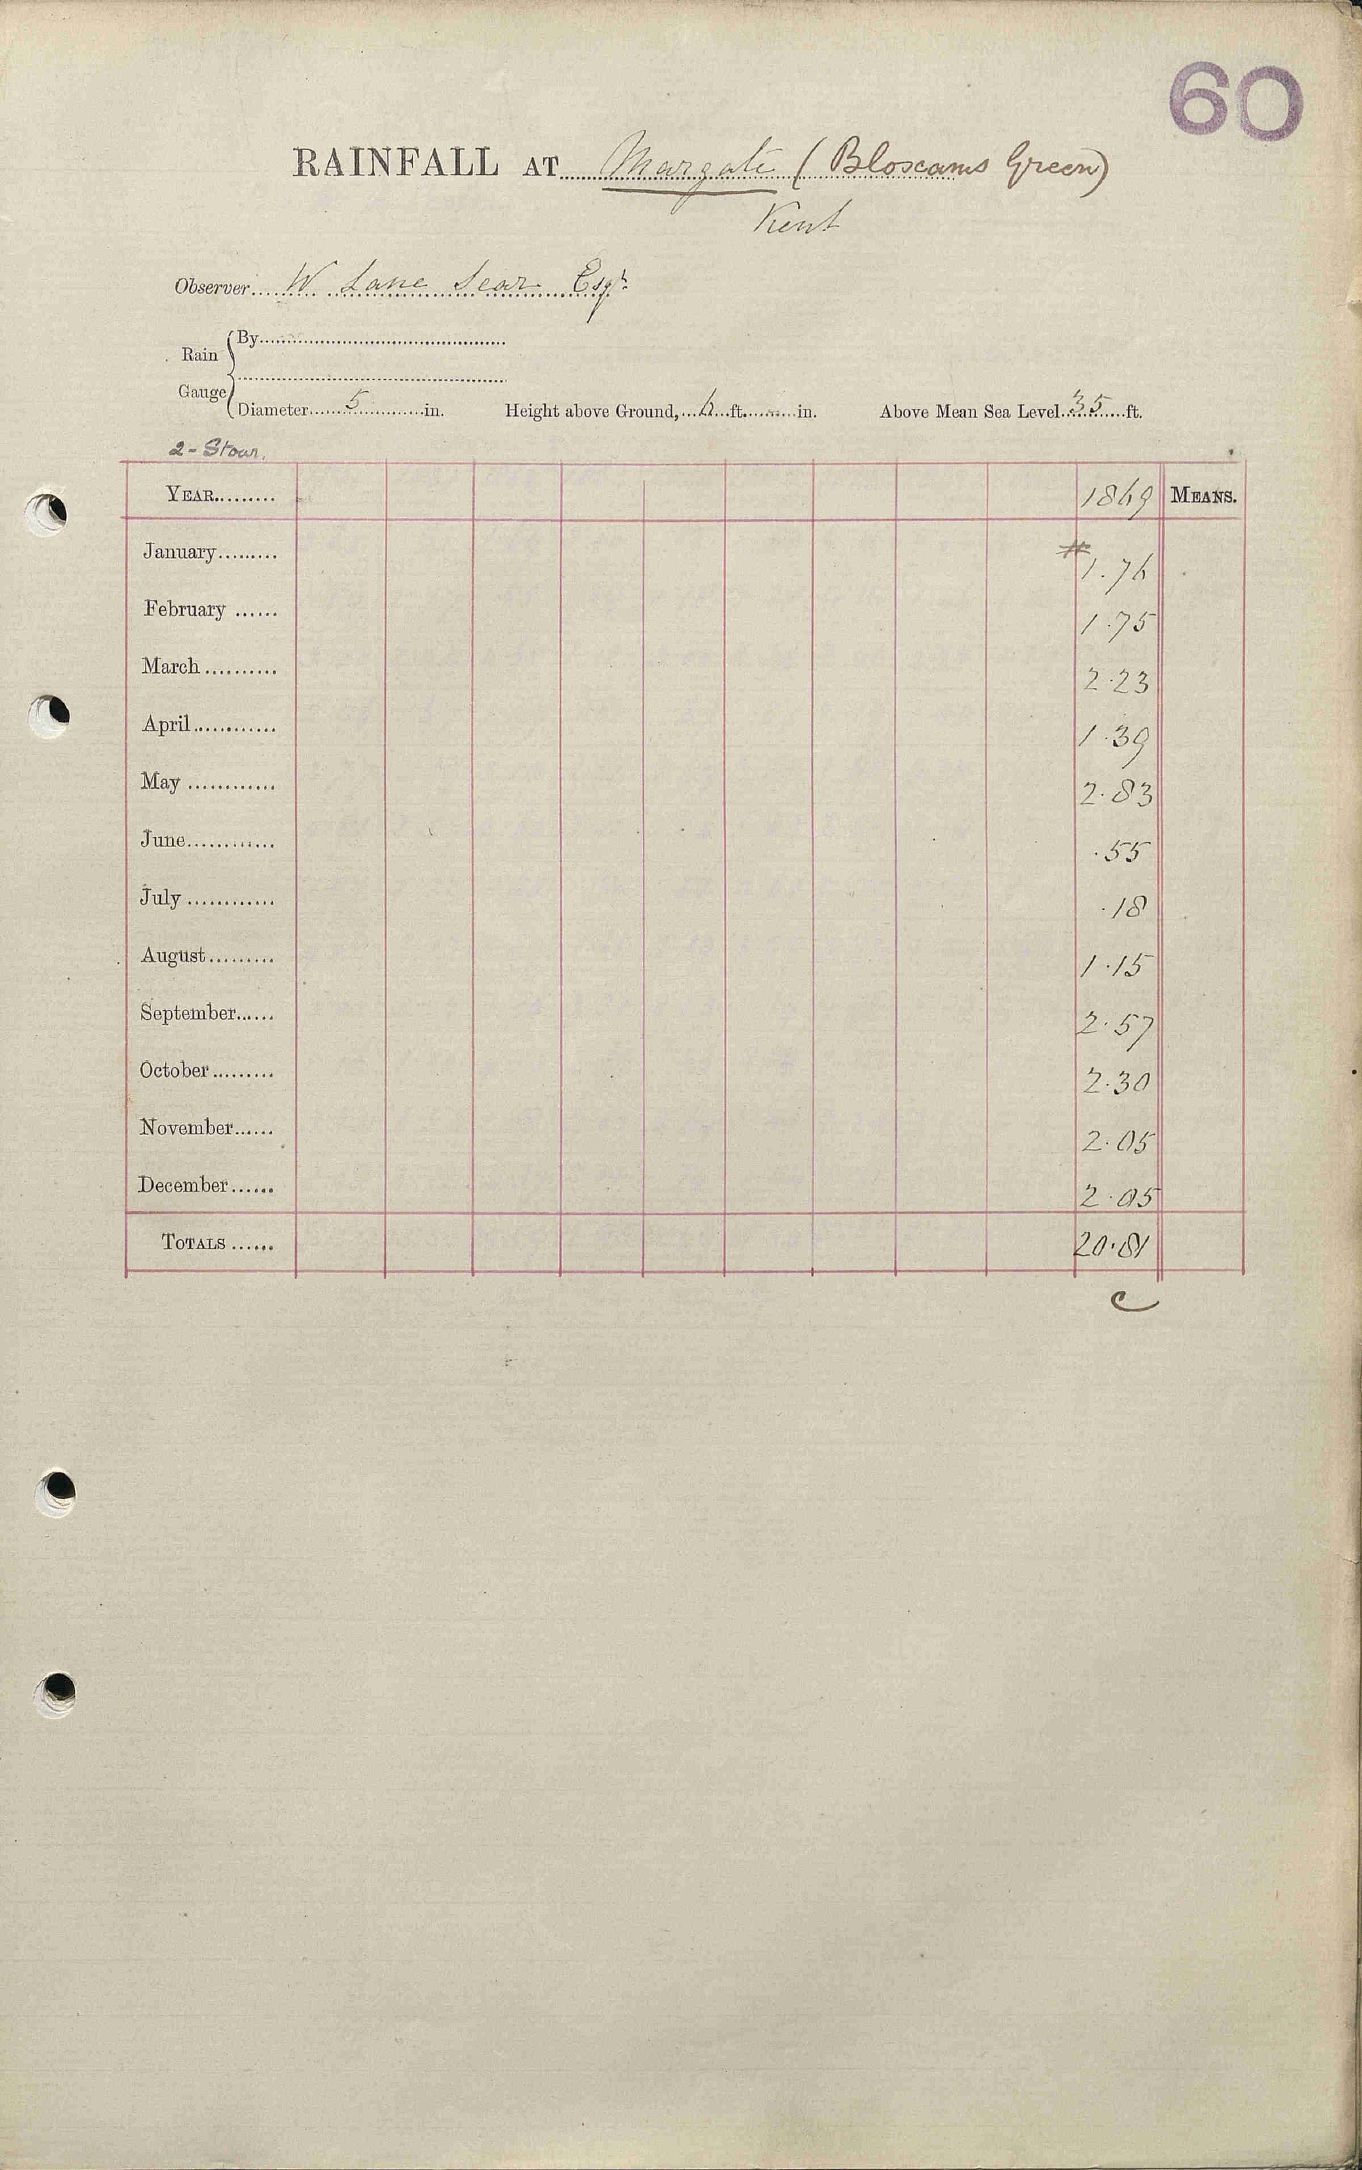 60
RAINFALL AT Margate (Bloxams Green)
Kent
Observer W Lane Sear Esqr.
Rain Gauge
By
Diameter 5 in. Height above Ground, 6 ft. in. Above Mean Sea Level 35 ft.
2 - Stour.
YEAR 1869 MEANS.
January # 1.76
February 1.75
March 2.23
April 1.39
May 2.83
June .55
July .18
August 1.15
September 2.57
October 2.30
November 2.05
December 2.05
TOTALS 20.81
C